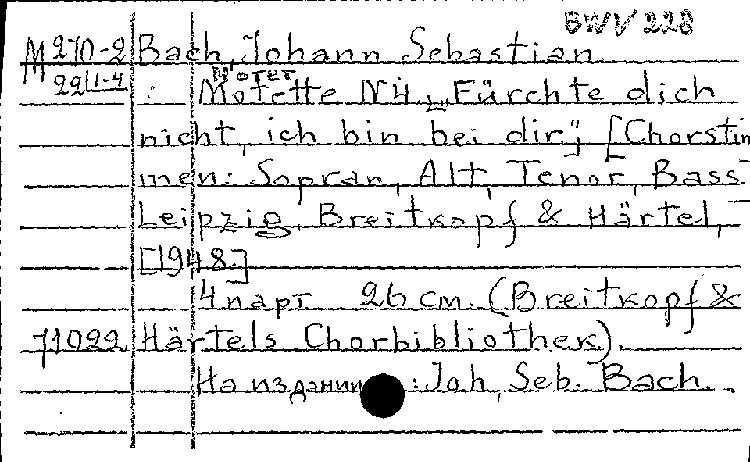 BWV 228
М 270-2 Bach, Johann Sebastian
22/1-4 Мотет
: Motette N4 „Fürchte dich
nicht, ich bin bei dir", [Chorstim
men: Sopran, Alt, Tenor, Bass
Leipzig, Breitkopf & Härtel,
[1948.]
4 парт 26 см. (Breitkopf &
71022 Härtels Chorbibliothek).
На издании : Joh, Seb. Bach.